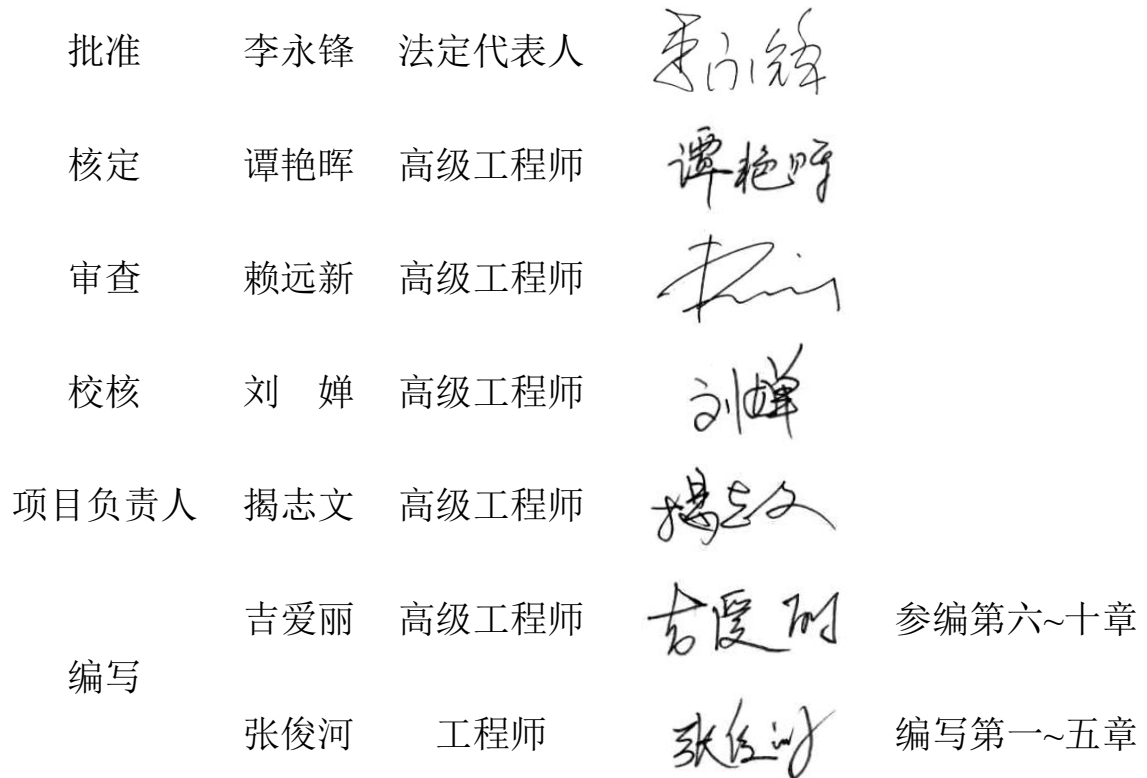 批准 李永锋 法定代表人 李永锋
核定 谭艳晖 高级工程师 谭艳晖
审查 赖远新 高级工程师
校核 刘 婵 高级工程师 刘婵
项目负责人 揭志文 高级工程师 揭志文
吉爱丽 高级工程师 吉爱丽 参编第六~十章
编写
张俊河 工程师 张俊河 编写第一~五章